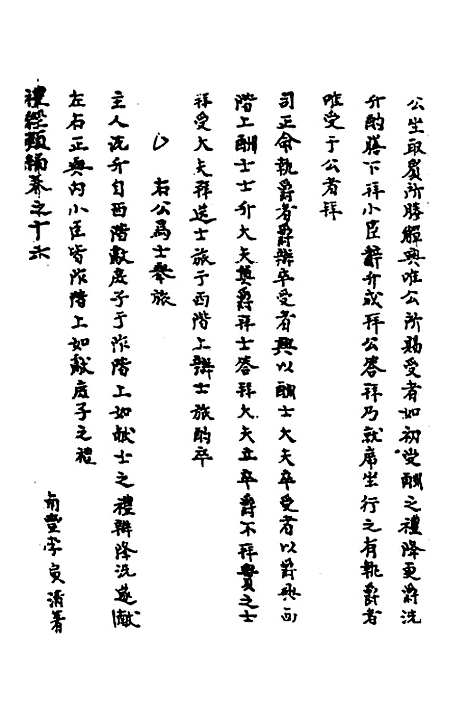 公坐取賓所媵觶興唯公所賜受者如初受酬之禮降更爵洗
升酌膳下拜小臣辭升成拜公答拜乃就席坐行之有執爵者
唯受于公者拜
司正命執爵者爵辯卒受者興以酬士大夫卒受者以爵興西
階上酬士士升大夫奠爵拜士答拜大夫立卒爵不拜實之士
拜受大夫拜送士旅于西階上辯士旅酌卒
右公為士舉旅
主人洗升自西階獻庶子于阼階上如献士之禮辯降洗遂獻
左右正與内小臣皆阼階上如獻庶子之禮
禮經類編卷之十六
南豐李寅清著